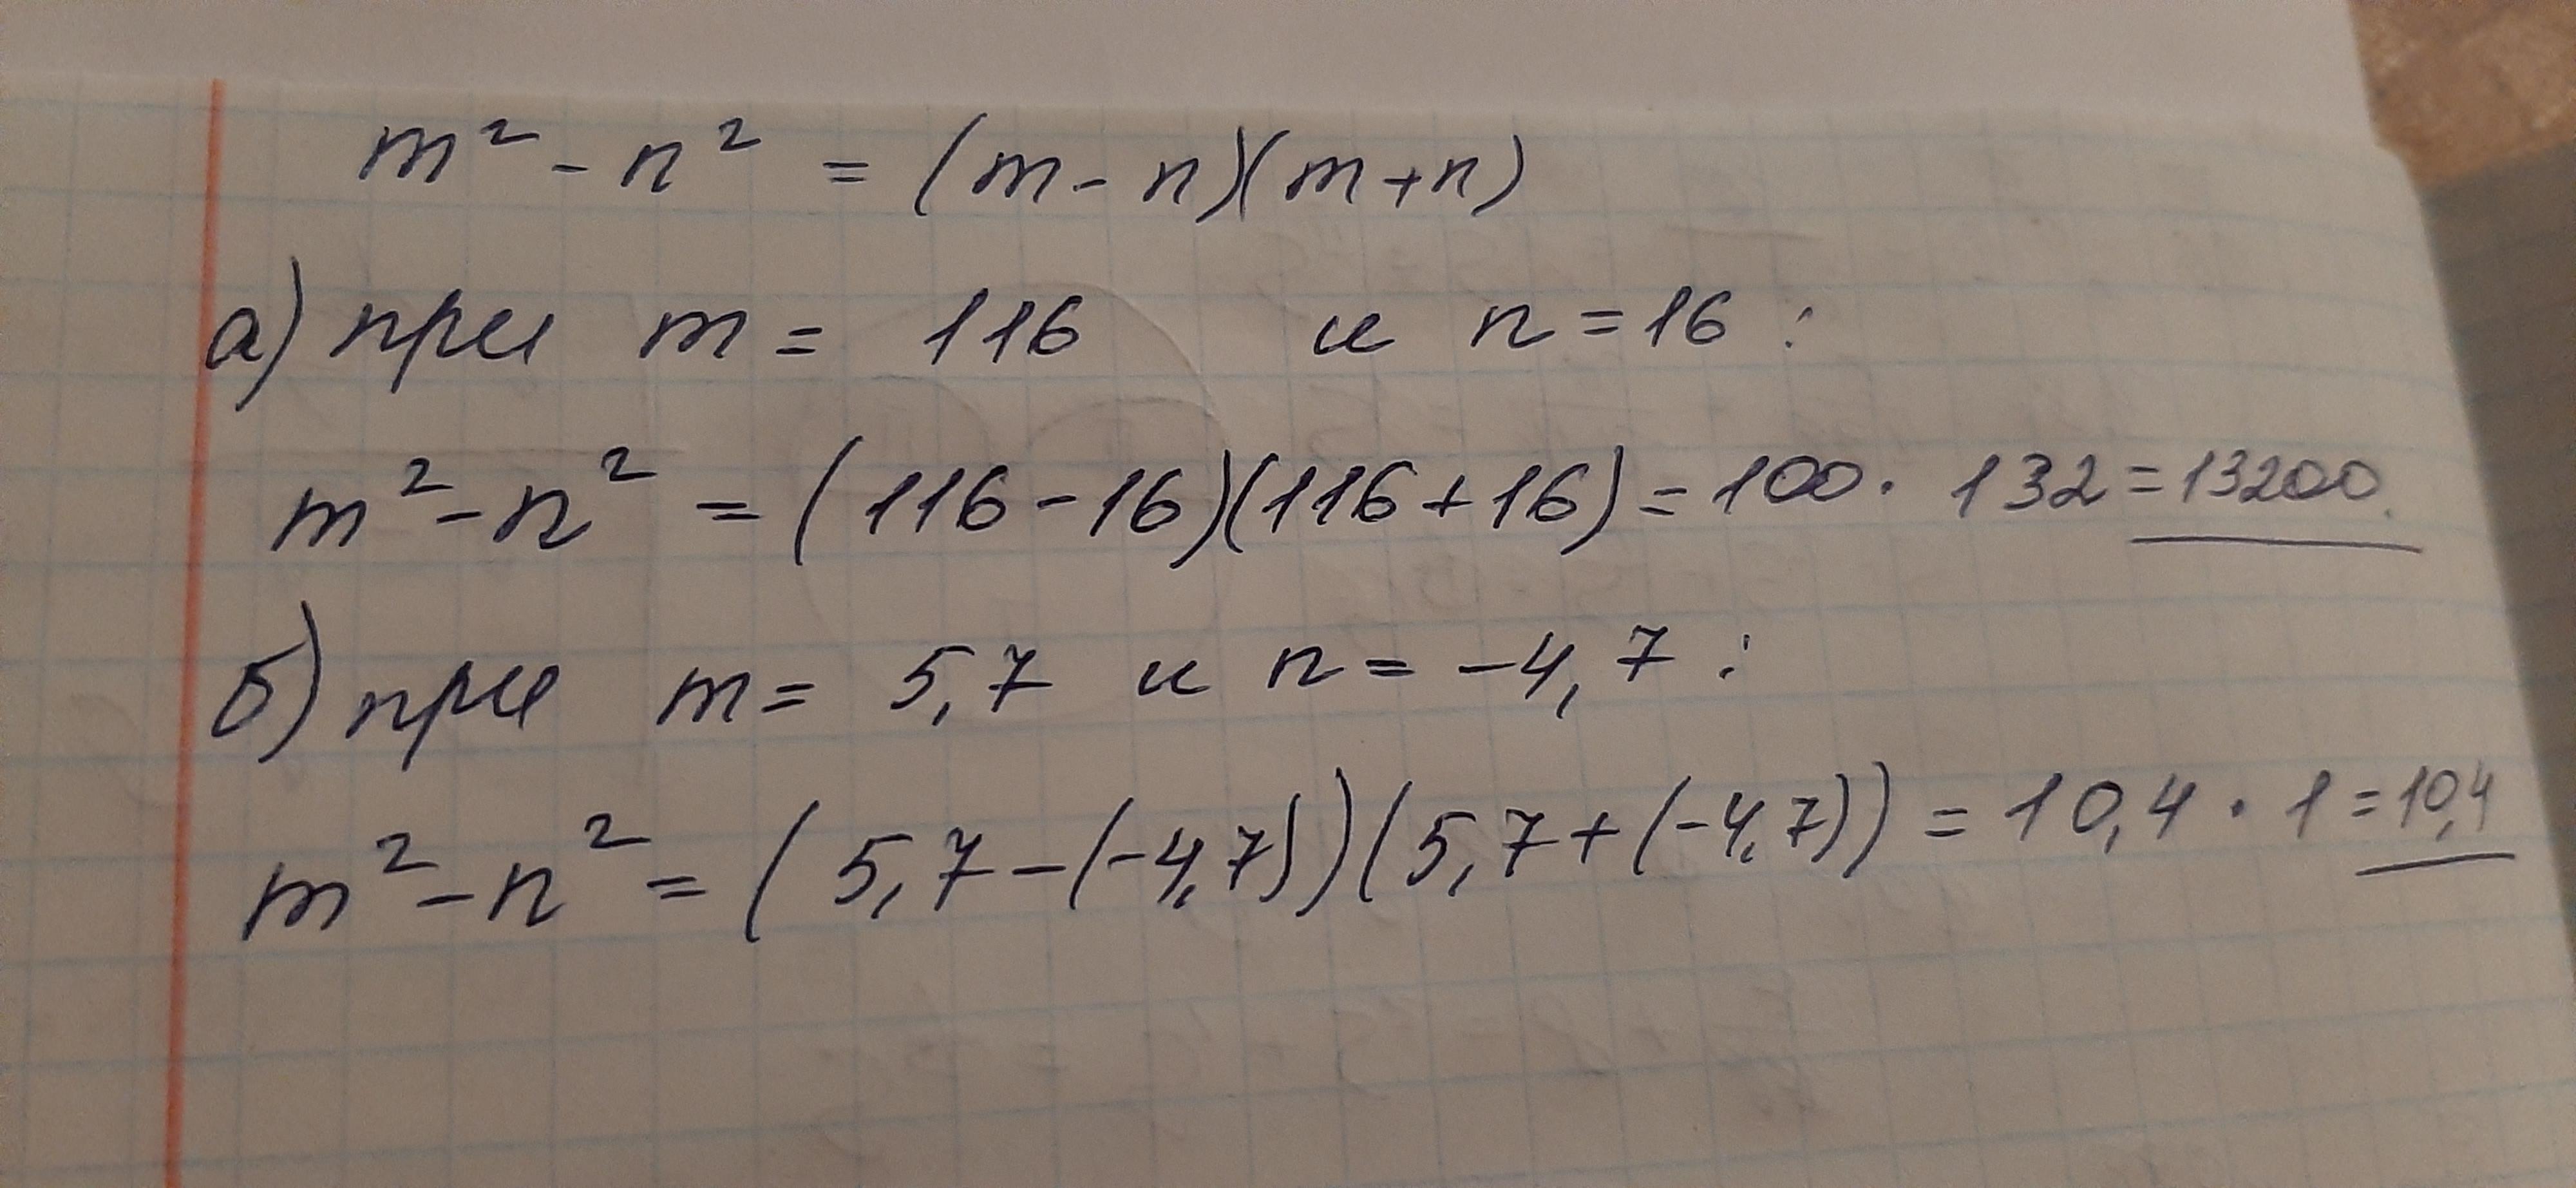 m² - n² = (m - n)(m + n)
а) при m = 116 и n = 16 :
m² - n² = (116 - 16)(116 + 16) = 100 · 132 = 13200.
б) при m = 5,7 и n = -4,7 :
m² - n² = (5,7 - (-4,7))(5,7 + (-4,7)) = 10,4 · 1 = 10,4